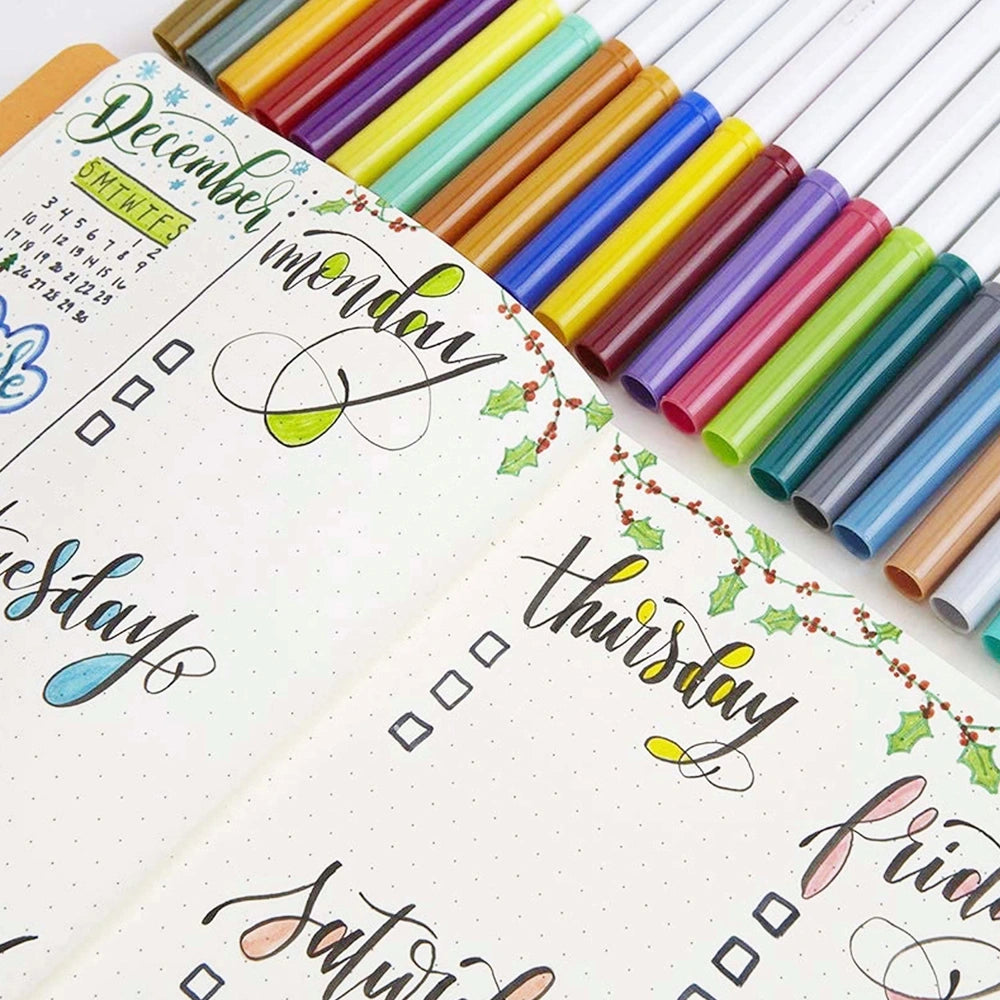 December
SMTWTFS
1 2
3 4 5 6 7 8 9
10 11 12 13 14 15 16
17 18 19 20 21 22 23
26 27 28 29 30
monday
uesday
thursday
frid
saturd